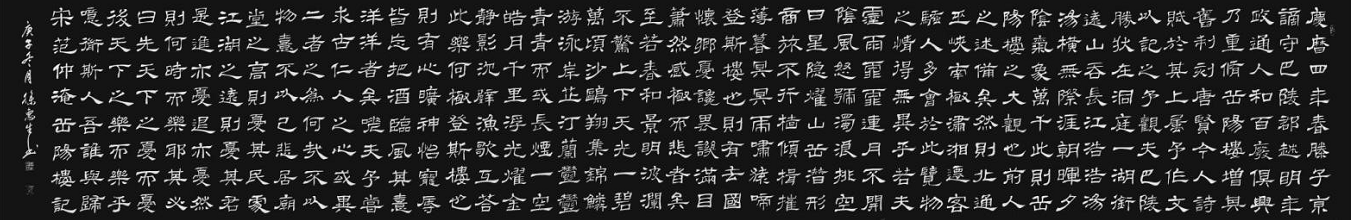 慶曆四年春滕子京
謫守巴陵郡越明年
政通人和百廢俱興
乃重脩岳陽樓增其
舊制刻唐賢今人詩
賦於其上屬予作文
以記之予觀夫巴陵
勝狀在洞庭一湖銜
遠山吞長江浩浩湯
湯橫無際涯朝暉夕
陰氣象萬千此則岳
陽樓之大觀也前人
之述備矣然則北通
巫峽南極瀟湘遷客
騷人多會於此覽物
之情得無異乎若夫
霪雨霏霏連月不開
陰風怒號濁浪排空
日星隱耀山岳潛形
商旅不行檣傾楫摧
薄暮冥冥虎嘯猿啼
登斯樓也則有去國
懷鄉憂讒畏譏滿目
蕭然感極而悲者矣
至若春和景明波瀾
不驚上下天光一碧
萬頃沙鷗翔集錦鱗
游泳岸芷汀蘭鬱鬱
青青而或長煙一空
皓月千里浮光耀金
靜影沉璧漁歌互答
此樂何極登斯樓也
則有心曠神怡寵辱
皆忘把酒臨風其喜
洋洋者矣嗟夫予嘗
求古仁人之心或異
二者之為何哉不以
物喜不以己悲居廟
堂之高則憂其民處
江湖之遠則憂其君
是進亦憂退亦憂然
則何時而樂耶其必
曰先天下之憂而憂
後天下之樂而樂乎
噫微斯人吾誰與歸
宋范仲淹岳陽樓記
庚子冬月徐